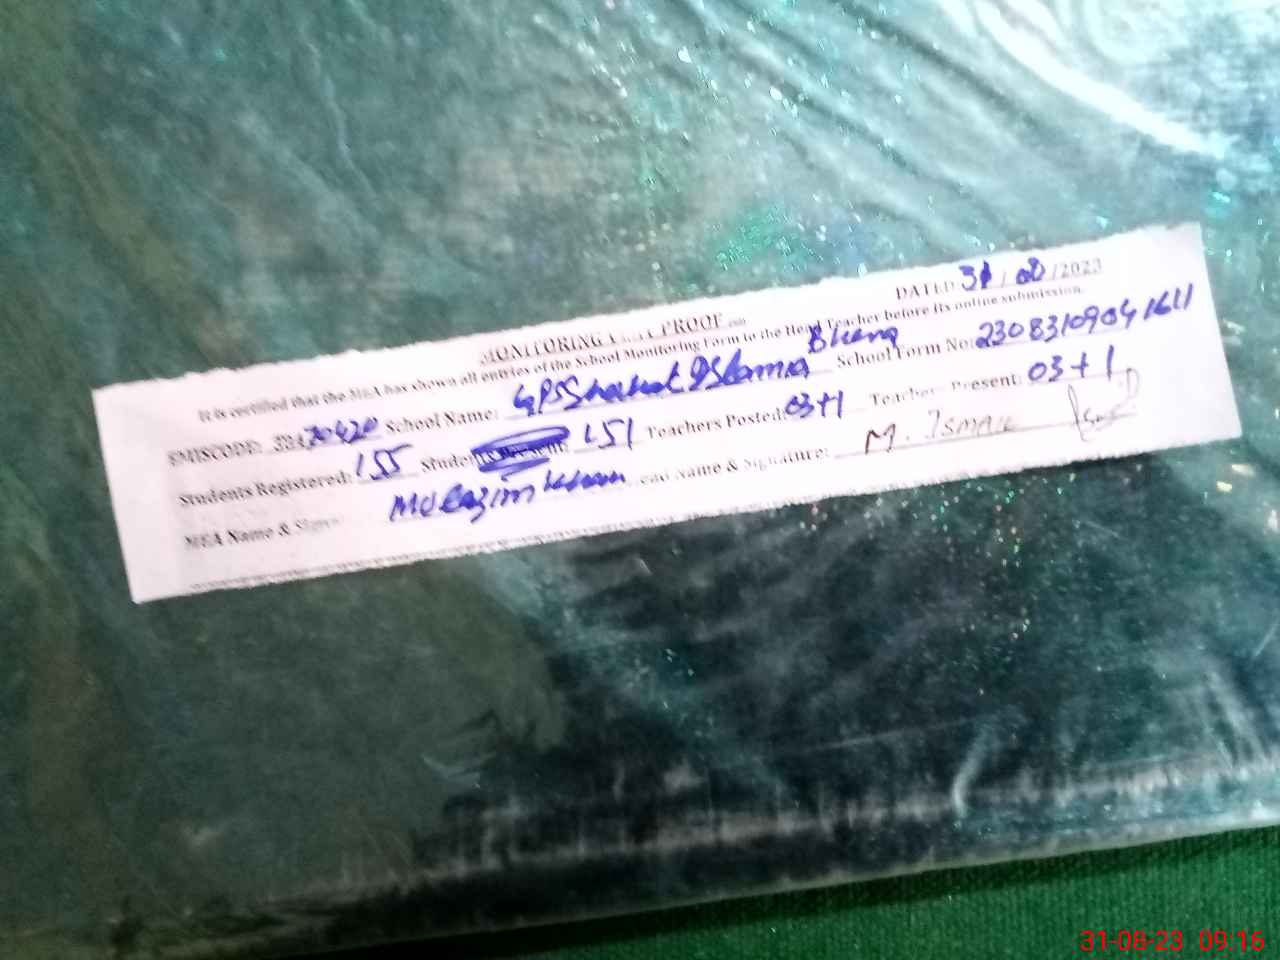 MONITORING PROOF
DATED 31/08/2023
It is certified that the MEA has shown all entries of the School Monitoring Form to the Head Teacher before its online submission.
EMISCODE: School Name: GPS Islamia Bhera School Form No: 23083109041611
Students Registered: 155 Students Present: 151 Teachers Posted: 03+1 Teacher Present: 03+1
MEA Name & Sign Khan Name & Signature: M. ISMAIL
31-08-23 09:16